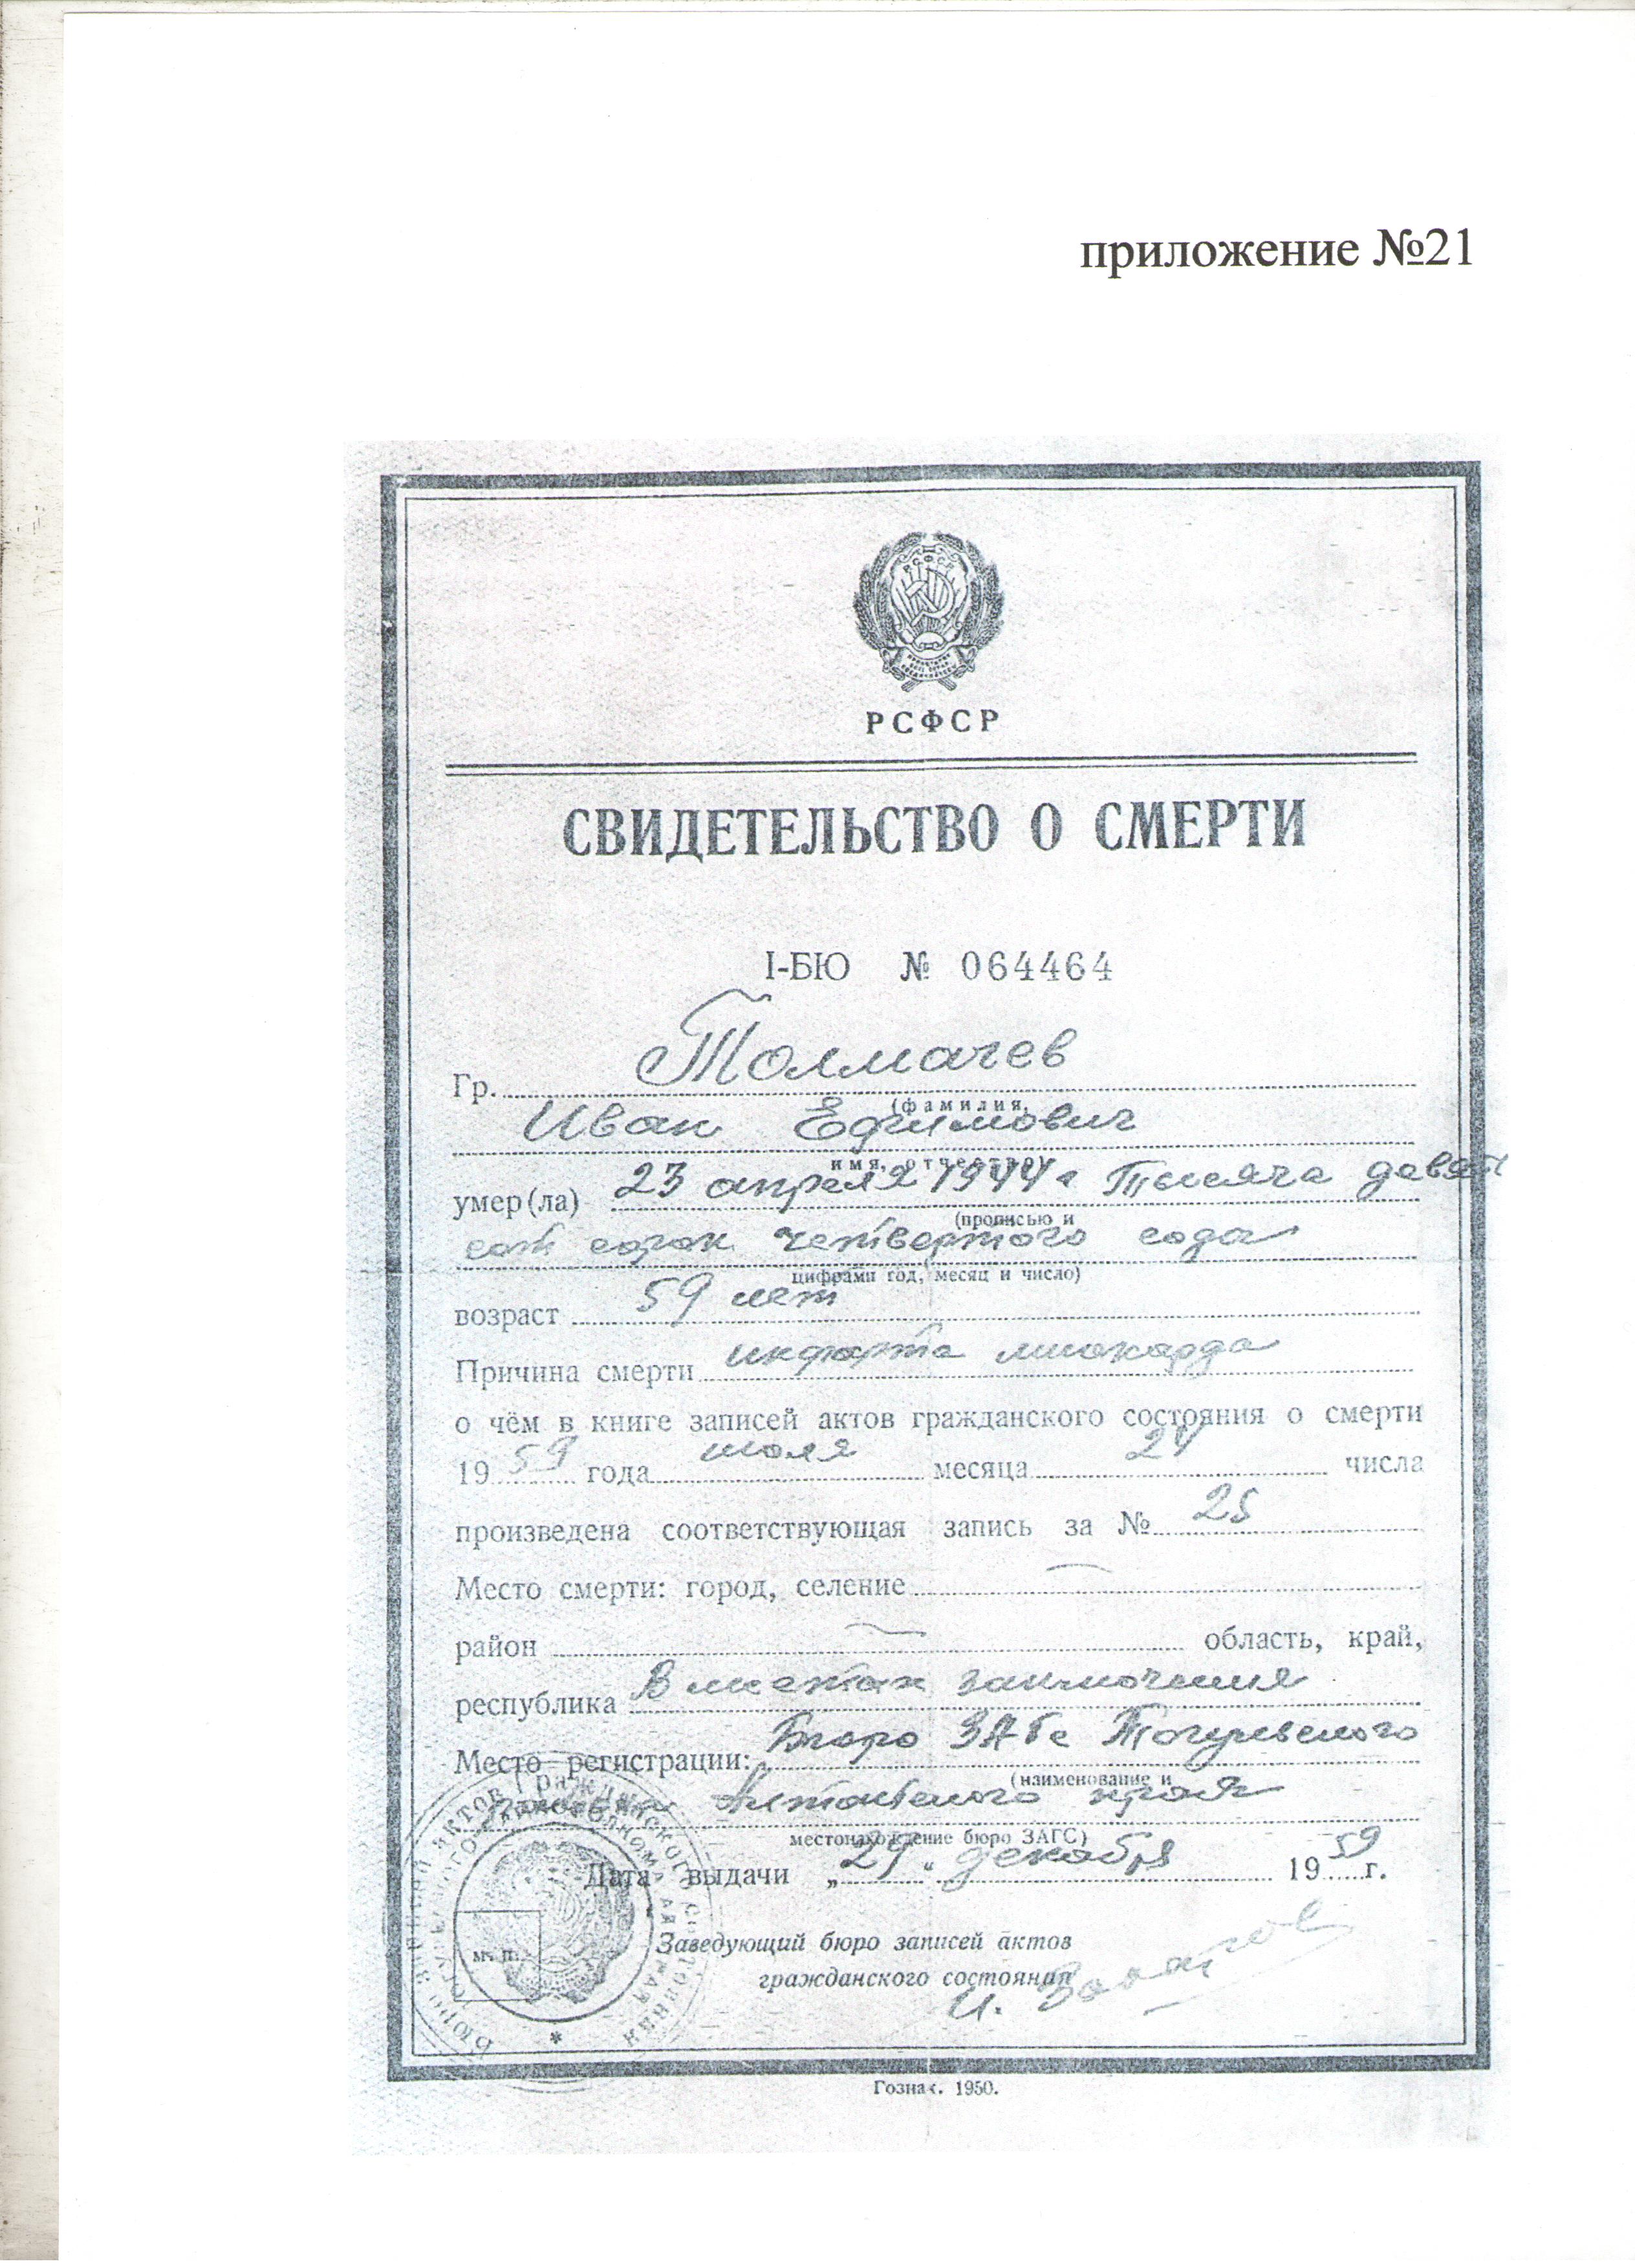 приложение №21
РСФСР
РСФСР
СВИДЕТЕЛЬСТВО О СМЕРТИ
I-БЮ № 064464
Гр. Толмачев
(фамилия,
Иван Ефимович
имя, отчество)
умер(ла) 23 апреля 1944 г Тысяча девят
(прописью и
сот сорок четвертого года
цифрами год, месяц и число)
возраст 59 лет
Причина смерти инфаркта миокарда
о чём в книге записей актов гражданского состояния о смерти
19 59 года июля месяца числа
произведена соответствующая запись за № 25
Место смерти: город, селение —
район — область, край,
республика В местах заключения
Место регистрации: Бюро ЗАГс Тогульского
(наименование и
Алтайского края
местонахождение бюро ЗАГС)
Дата выдачи „ 29 " декабря 19 59 г.
м. п.
Заведующий бюро записей актов
гражданского состояния
Гознак. 1950.